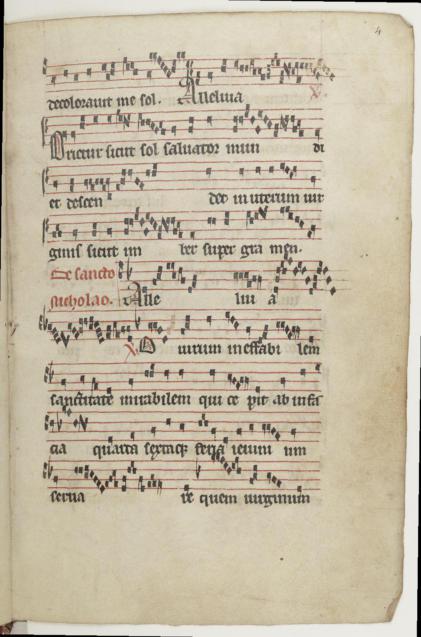 4
decolorauit me sol. Alleluia
Orietur sicut sol saluator mun di
et descen det in uterum uir
ginis sicut im ber super gra men.
De sancto
nicholao. Alle lui a
O uirum ineffabi lem
sanctitate mirabilem qui ce pit ab infa
cia quarta sextaque feria ieiuni um
serua re quem uirginum